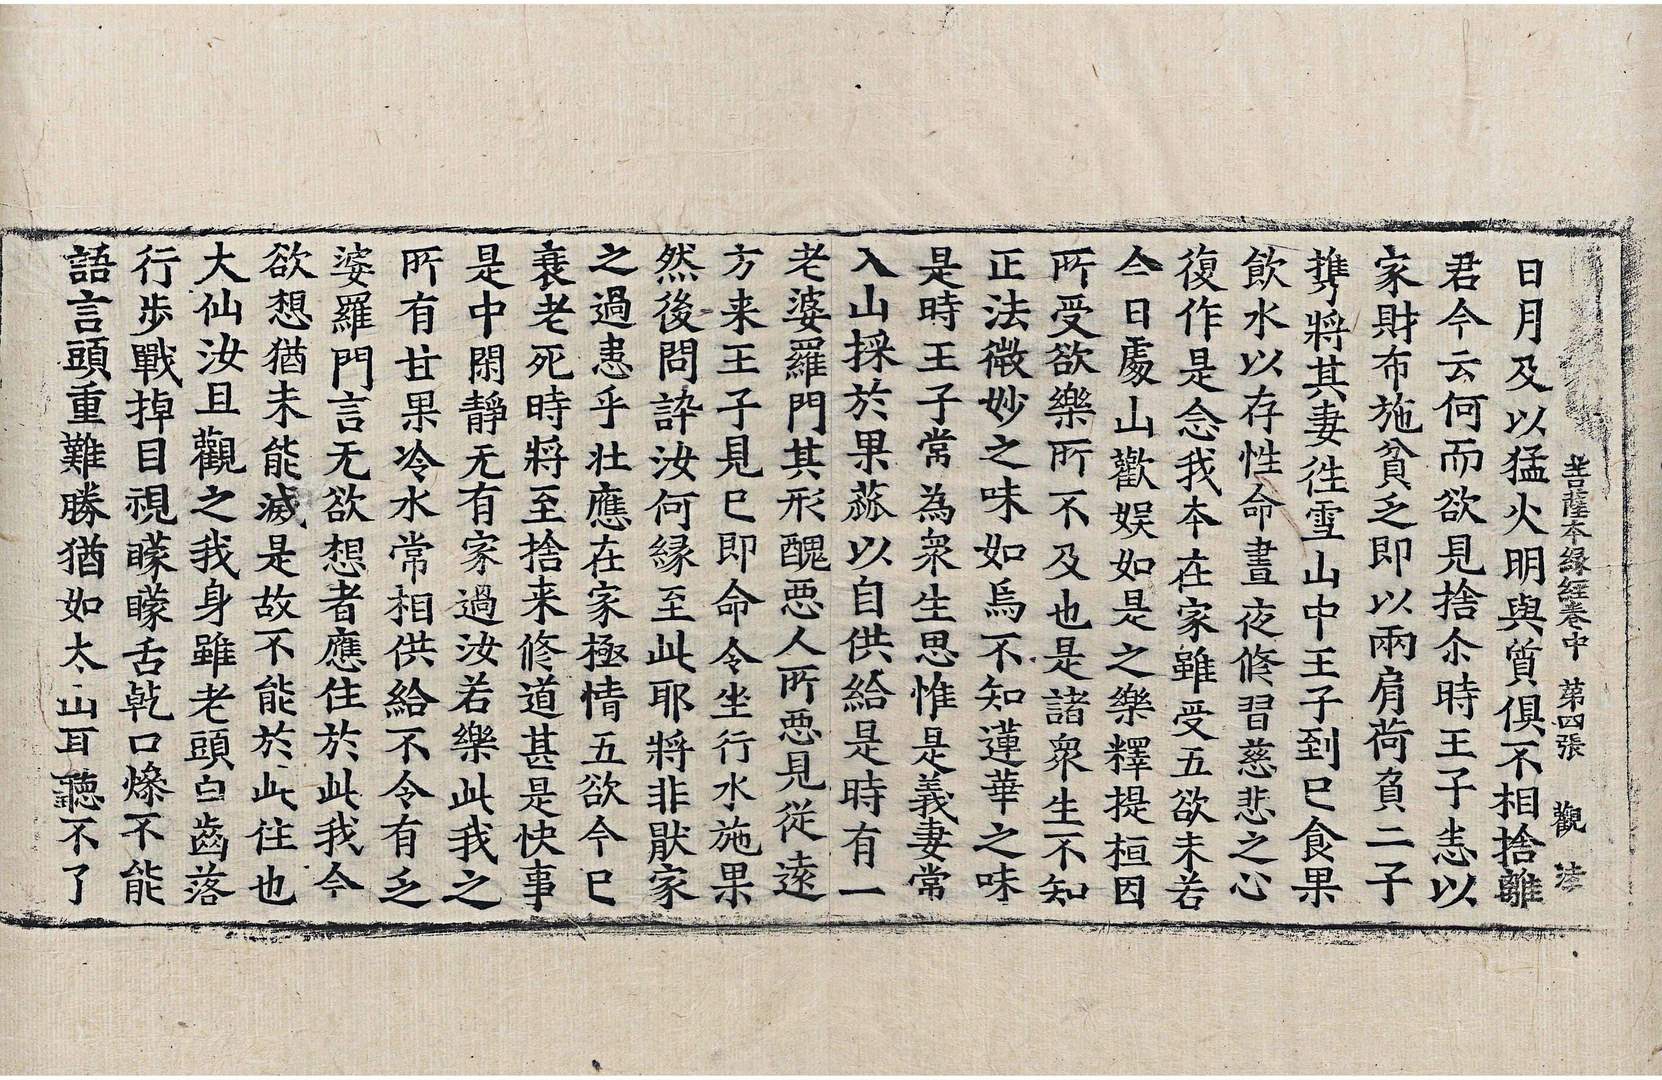 菩薩本緣經卷中 第四張 觀
日月及以猛火明與質俱不相捨離
君今云何而欲見捨尒時王子恚以
家財布施貧乏即以兩肩荷負二子
攜將其妻徃雪山中王子到已食果
飲水以存性命晝夜修習慈悲之心
復作是念我本在家雖受五欲未若
今日處山歡娛如是之樂釋提桓因
所受欲樂所不及也是諸衆生不知
正法微妙之味如烏不知蓮華之味
是時王子常為衆生思惟是義妻常
入山採於果蓏以自供給是時有一
老婆羅門其形醜恶人所恶見從遠
方来王子見已即命令坐行水施果
然後問訊汝何緣至此耶將非猒家
之過患乎壯應在家極情五欲今已
衰老死時將至捨来修道甚是快事
是中閑靜无有家過汝若樂此我之
所有甘果冷水常相供給不令有乏
婆羅門言无欲想者應住於此我今
欲想猶未能滅是故不能於此住也
大仙汝且觀之我身雖老頭白齒落
行步戰掉目視矇矇舌乾口燥不能
語言頭重難勝猶如太山耳聽不了